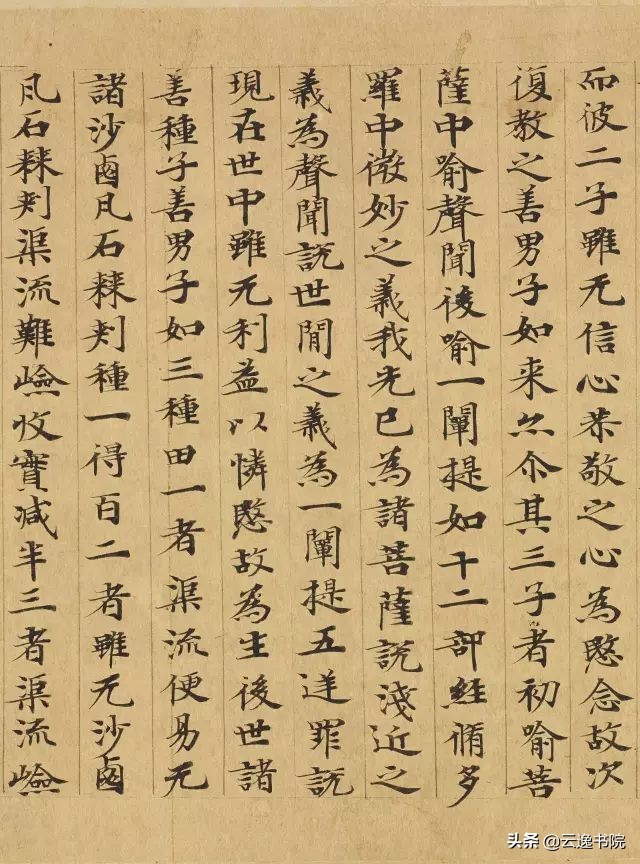 而彼二子雖无信心恭敬之心為愍念故次
復教之善男子如来亦尒其三子者初喻菩
薩中喻聲聞後喻一闡提如十二部經脩多
羅中微妙之義我先已為諸菩薩說淺近之
義為聲聞說世間之義為一闡提五逆罪說
現在世中雖无利益以憐愍故為生後世諸
善種子善男子如三種田一者渠流便易无
諸沙鹵凡石棘刾種一得百二者雖无沙鹵
凡石棘刾渠流難嶮收實减半三者渠流嶮
头条@云逸书院